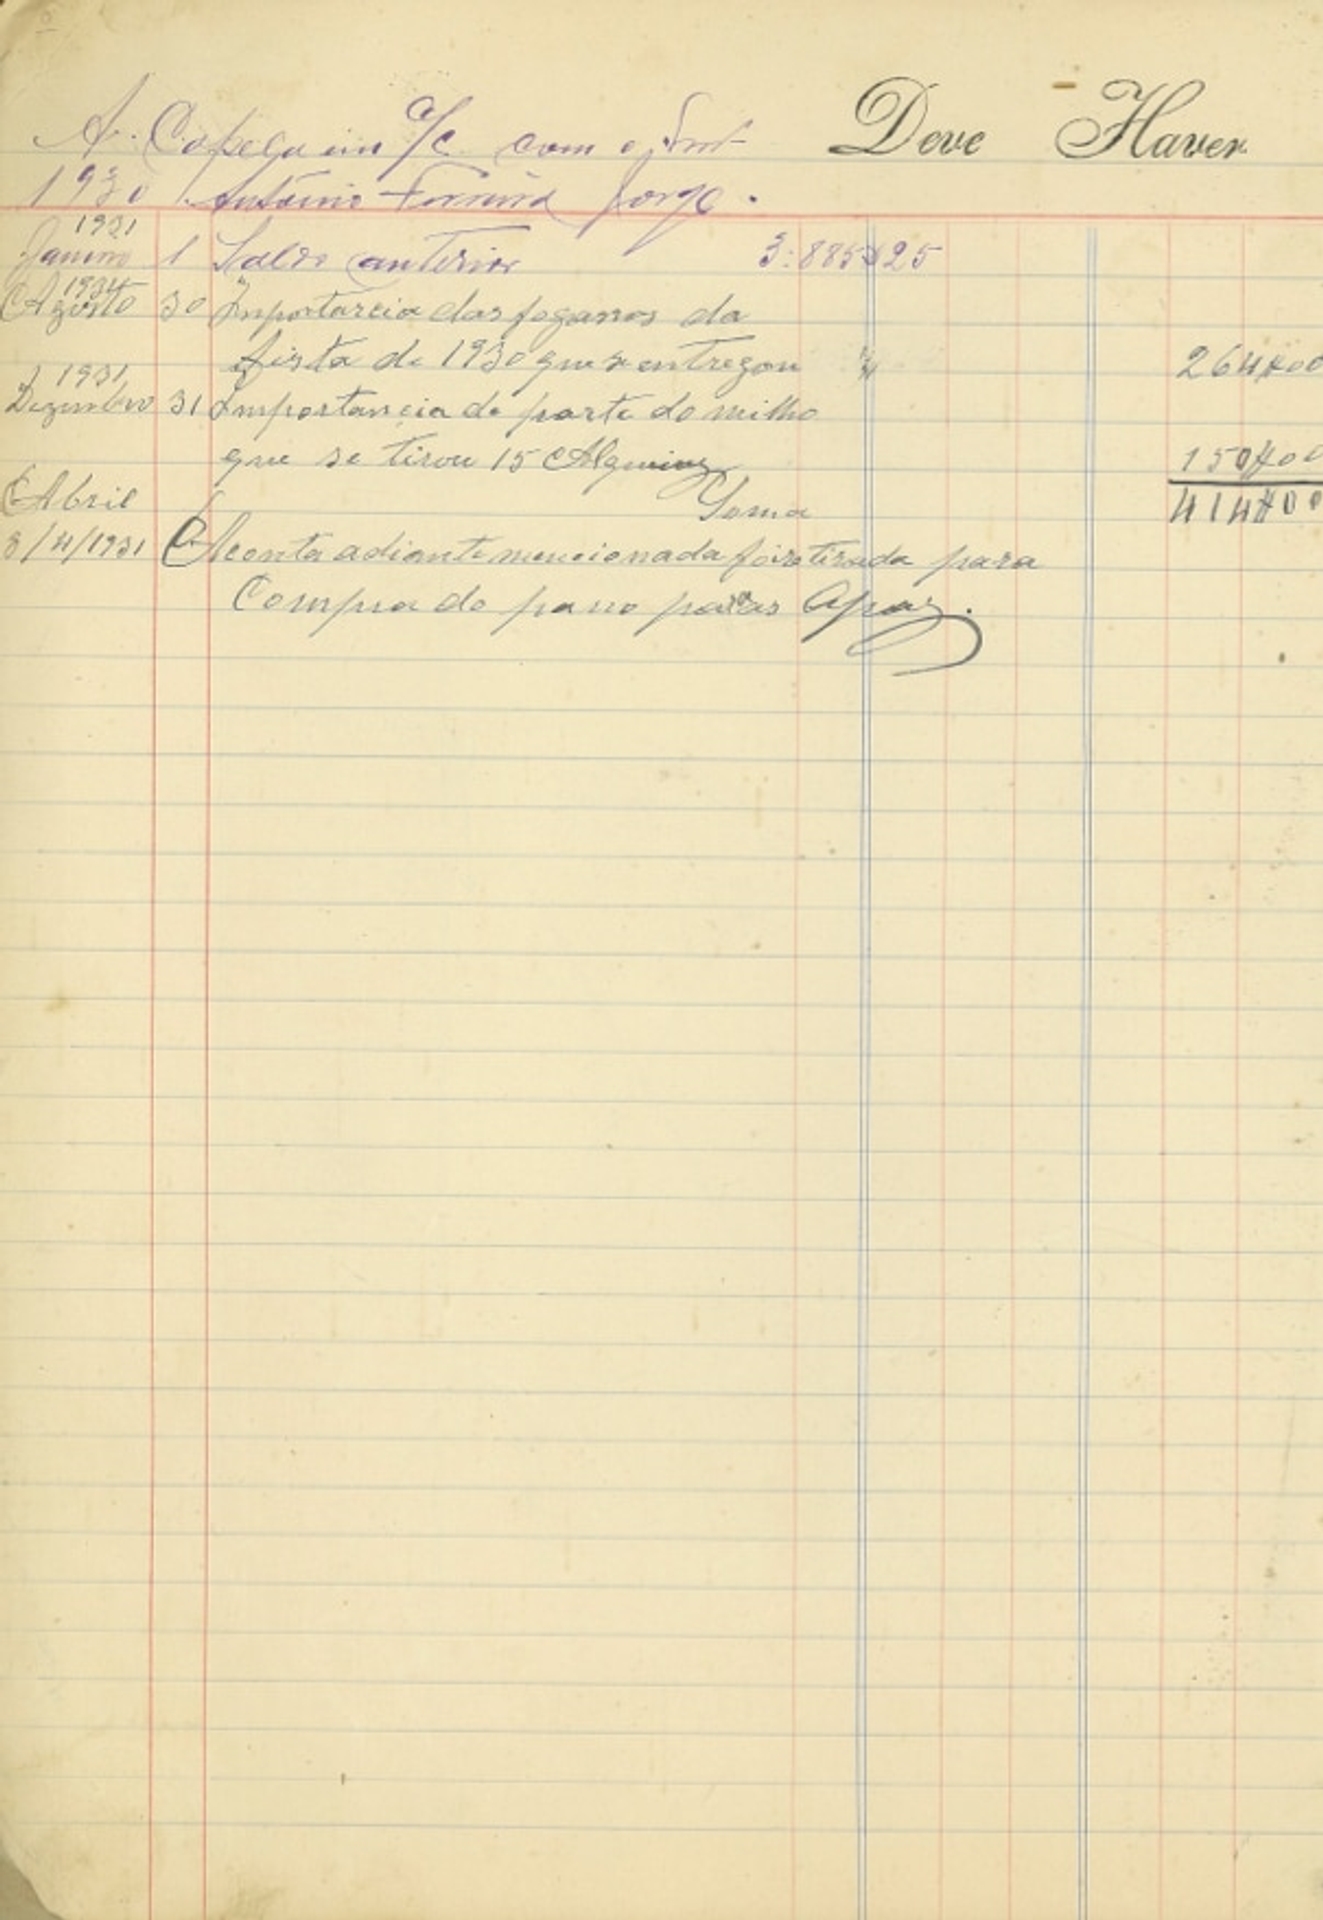 A. Capela em c/c com o Snr. Deve Haver
1930 António Ferreira Jorge.
1931
Janeiro 1 Saldo anterior 3:885$25
1931
Agosto 30 Importancia das fogassos da
festa de 1930 que se entregou 264$00
1931
Dezembro 31 Importancia de parte do milho
que se tirou 15 Alqueires 150$00
Abril Soma 414$00
8/4/1931 A conta adiante mencionada foi retirada para
Compra do pano para as Opas.